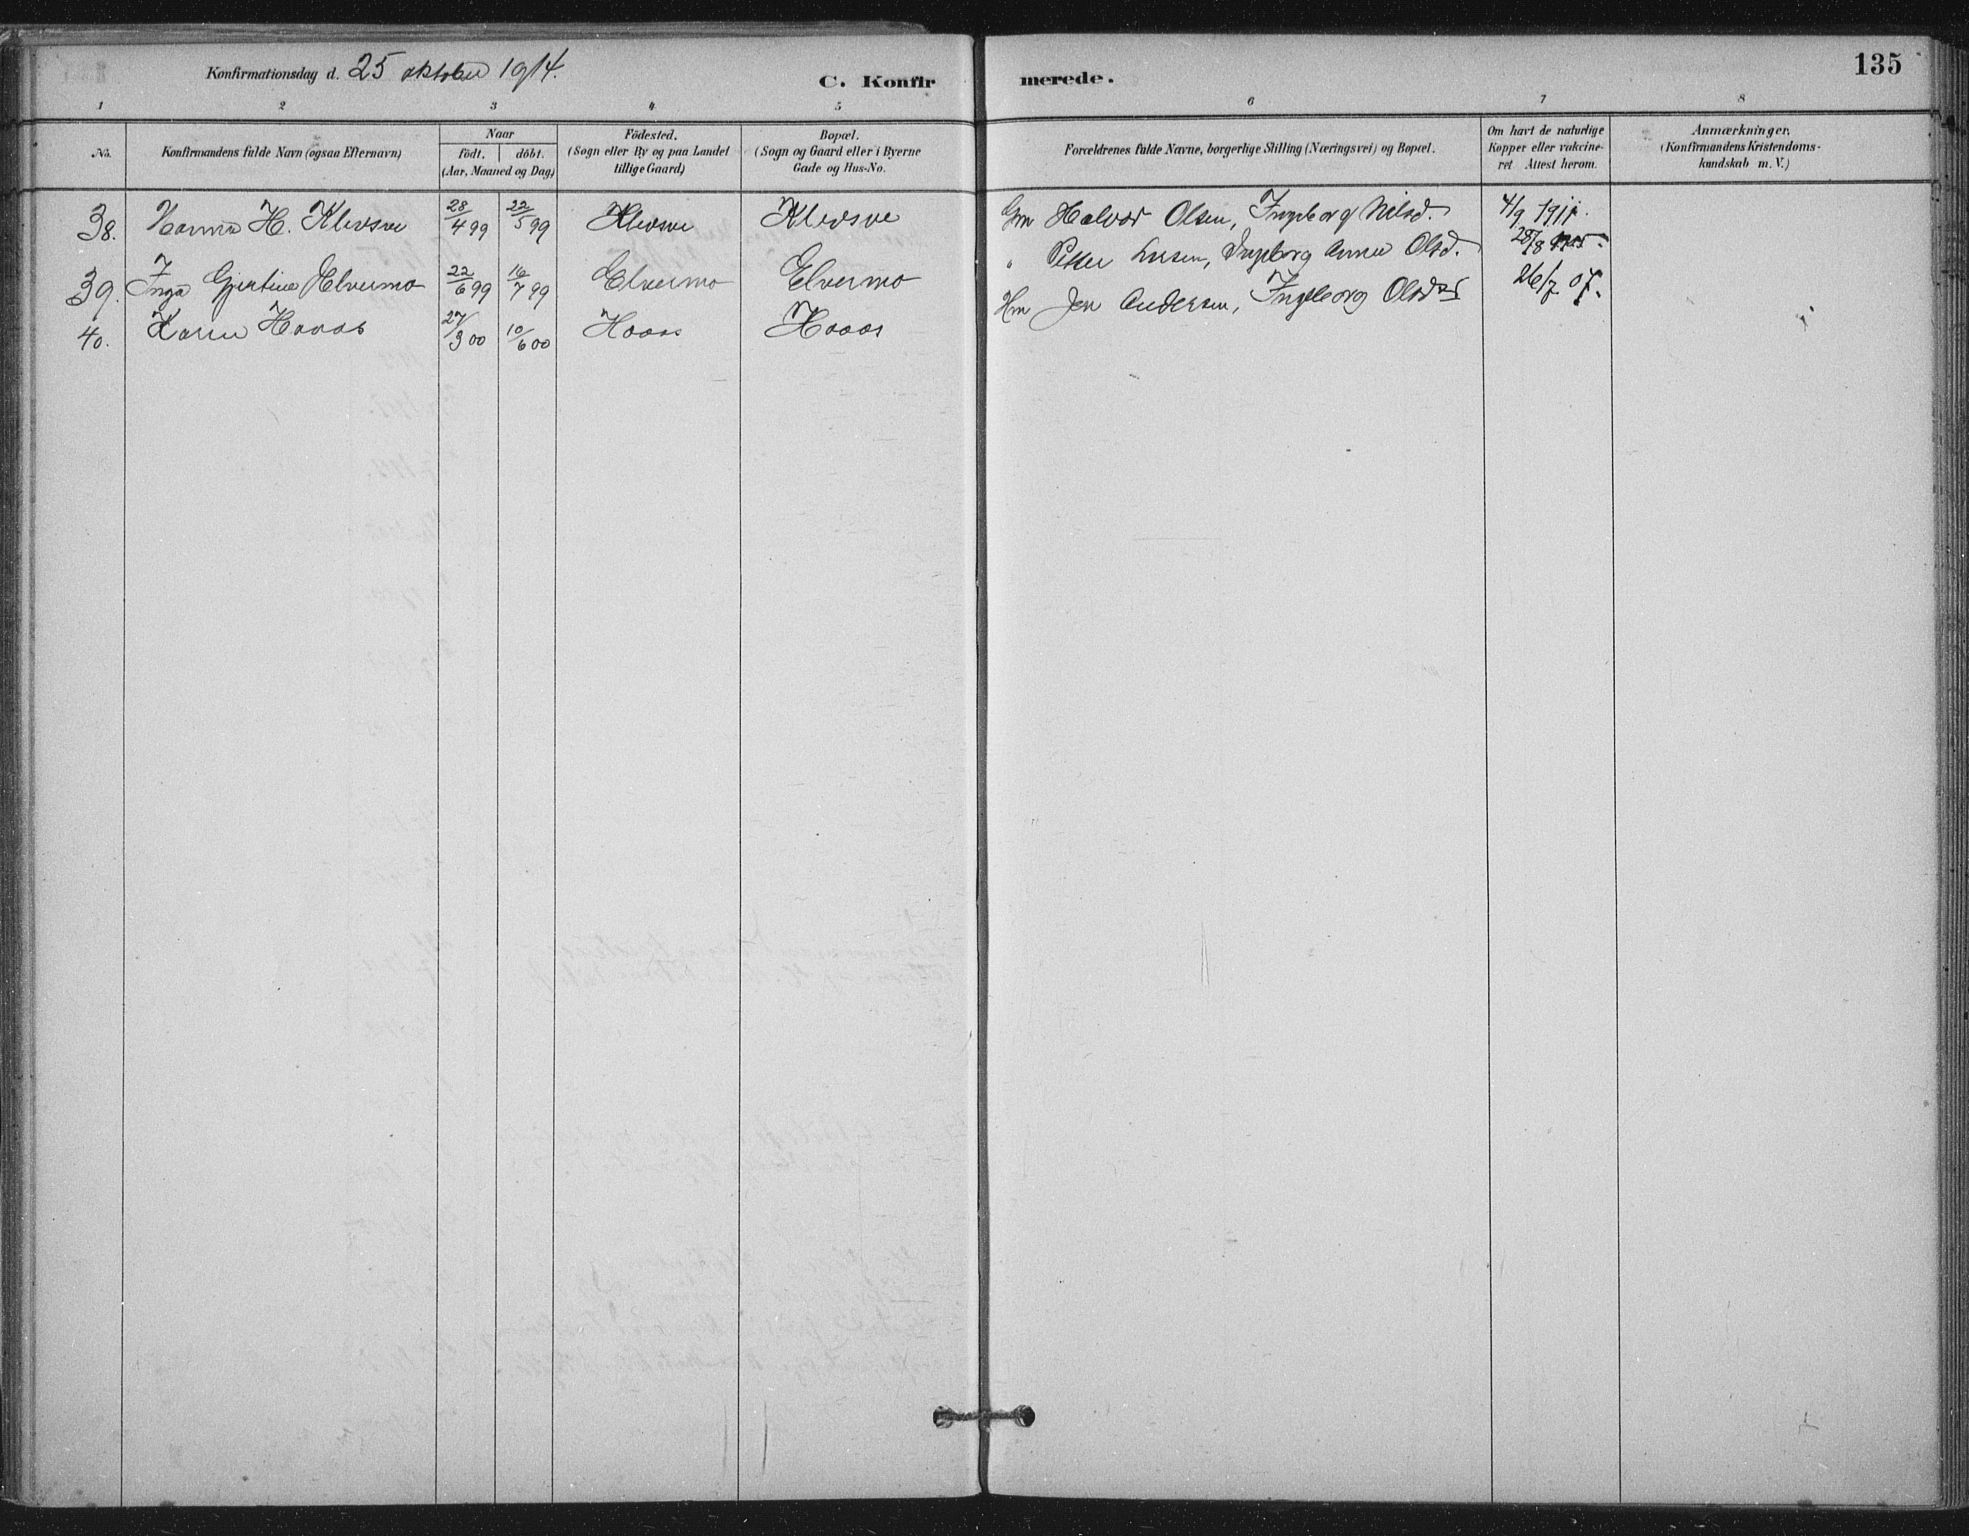 Konfirmationsdag d. 25 oktober 1914.
C. Konfirmerede.
135
1 2 3 4 5 6 7 8
No.
Konfirmandens fulde Navn (ogsaa Efternavn)
Naar
födt. döbt.
(Aar, Maaned og Dag)
Födested.
(Sogn eller By og paa Landet
tillige Gaard)
Bopæl.
(Sogn og Gaard eller i Byerne
Gade og Hus-No.
Forældrenes fulde Navne, borgerlige Stilling (Næringsvei) og Bopæl.
Om havt de naturlige
Kopper eller vakcine-
ret Attest herom.
Anmærkninger.
(Konfirmandens Kristendoms-
kundskab m. V.)
38. Hanna H. Klevsve 28/4 99 22/5 99 Klevsve Klevsve Gm Halvor Olsen, Ingeborg Nilsd. 4/9 1911.
39. Inga Gjertine Elvermo 22/6 99 16/7 99 Elvermo Elvermo " Petter Larsen, Ingeborg Anna Olsd. 28/8
40. Karen Haaas 27/3 00 10/6 00 Haaas Haaas Hm Jon Andersen, Ingeborg Olsd 26/7 07.